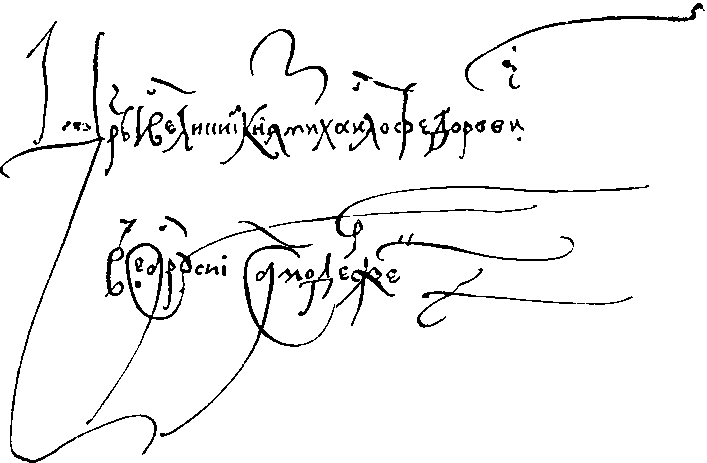 Црь и великиі княз михаило федорович
всеа русиі самодержец